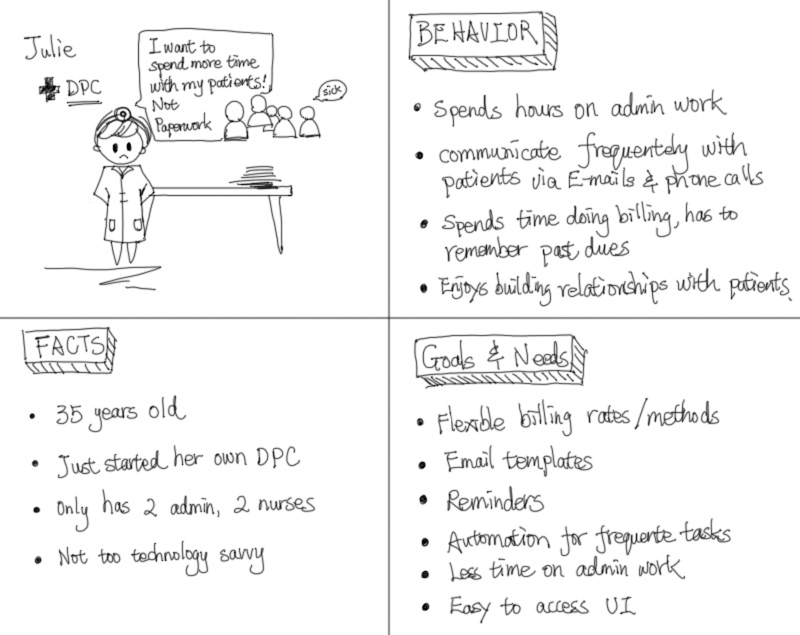 Julie
DPC
I want to
spend more time
with my patients!
Not
Paperwork
sick
BEHAVIOR
Spends hours on admin work
communicate frequentely with
patients via E-mails & phone calls
Spends time doing billing, has to
remember past dues
Enjoys building relationships with patients.
FACTS
35 years old
Just started her own DPC
Only has 2 admin, 2 nurses
Not too technology savvy
Goals & Needs
Flexible billing rates/methods
Email templates
Reminders
Automation for frequente tasks
Less time on admin work
Easy to access UI